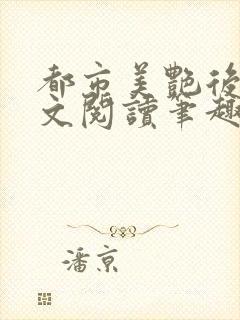 都市美艷後
文閱讀筆趣
潘京